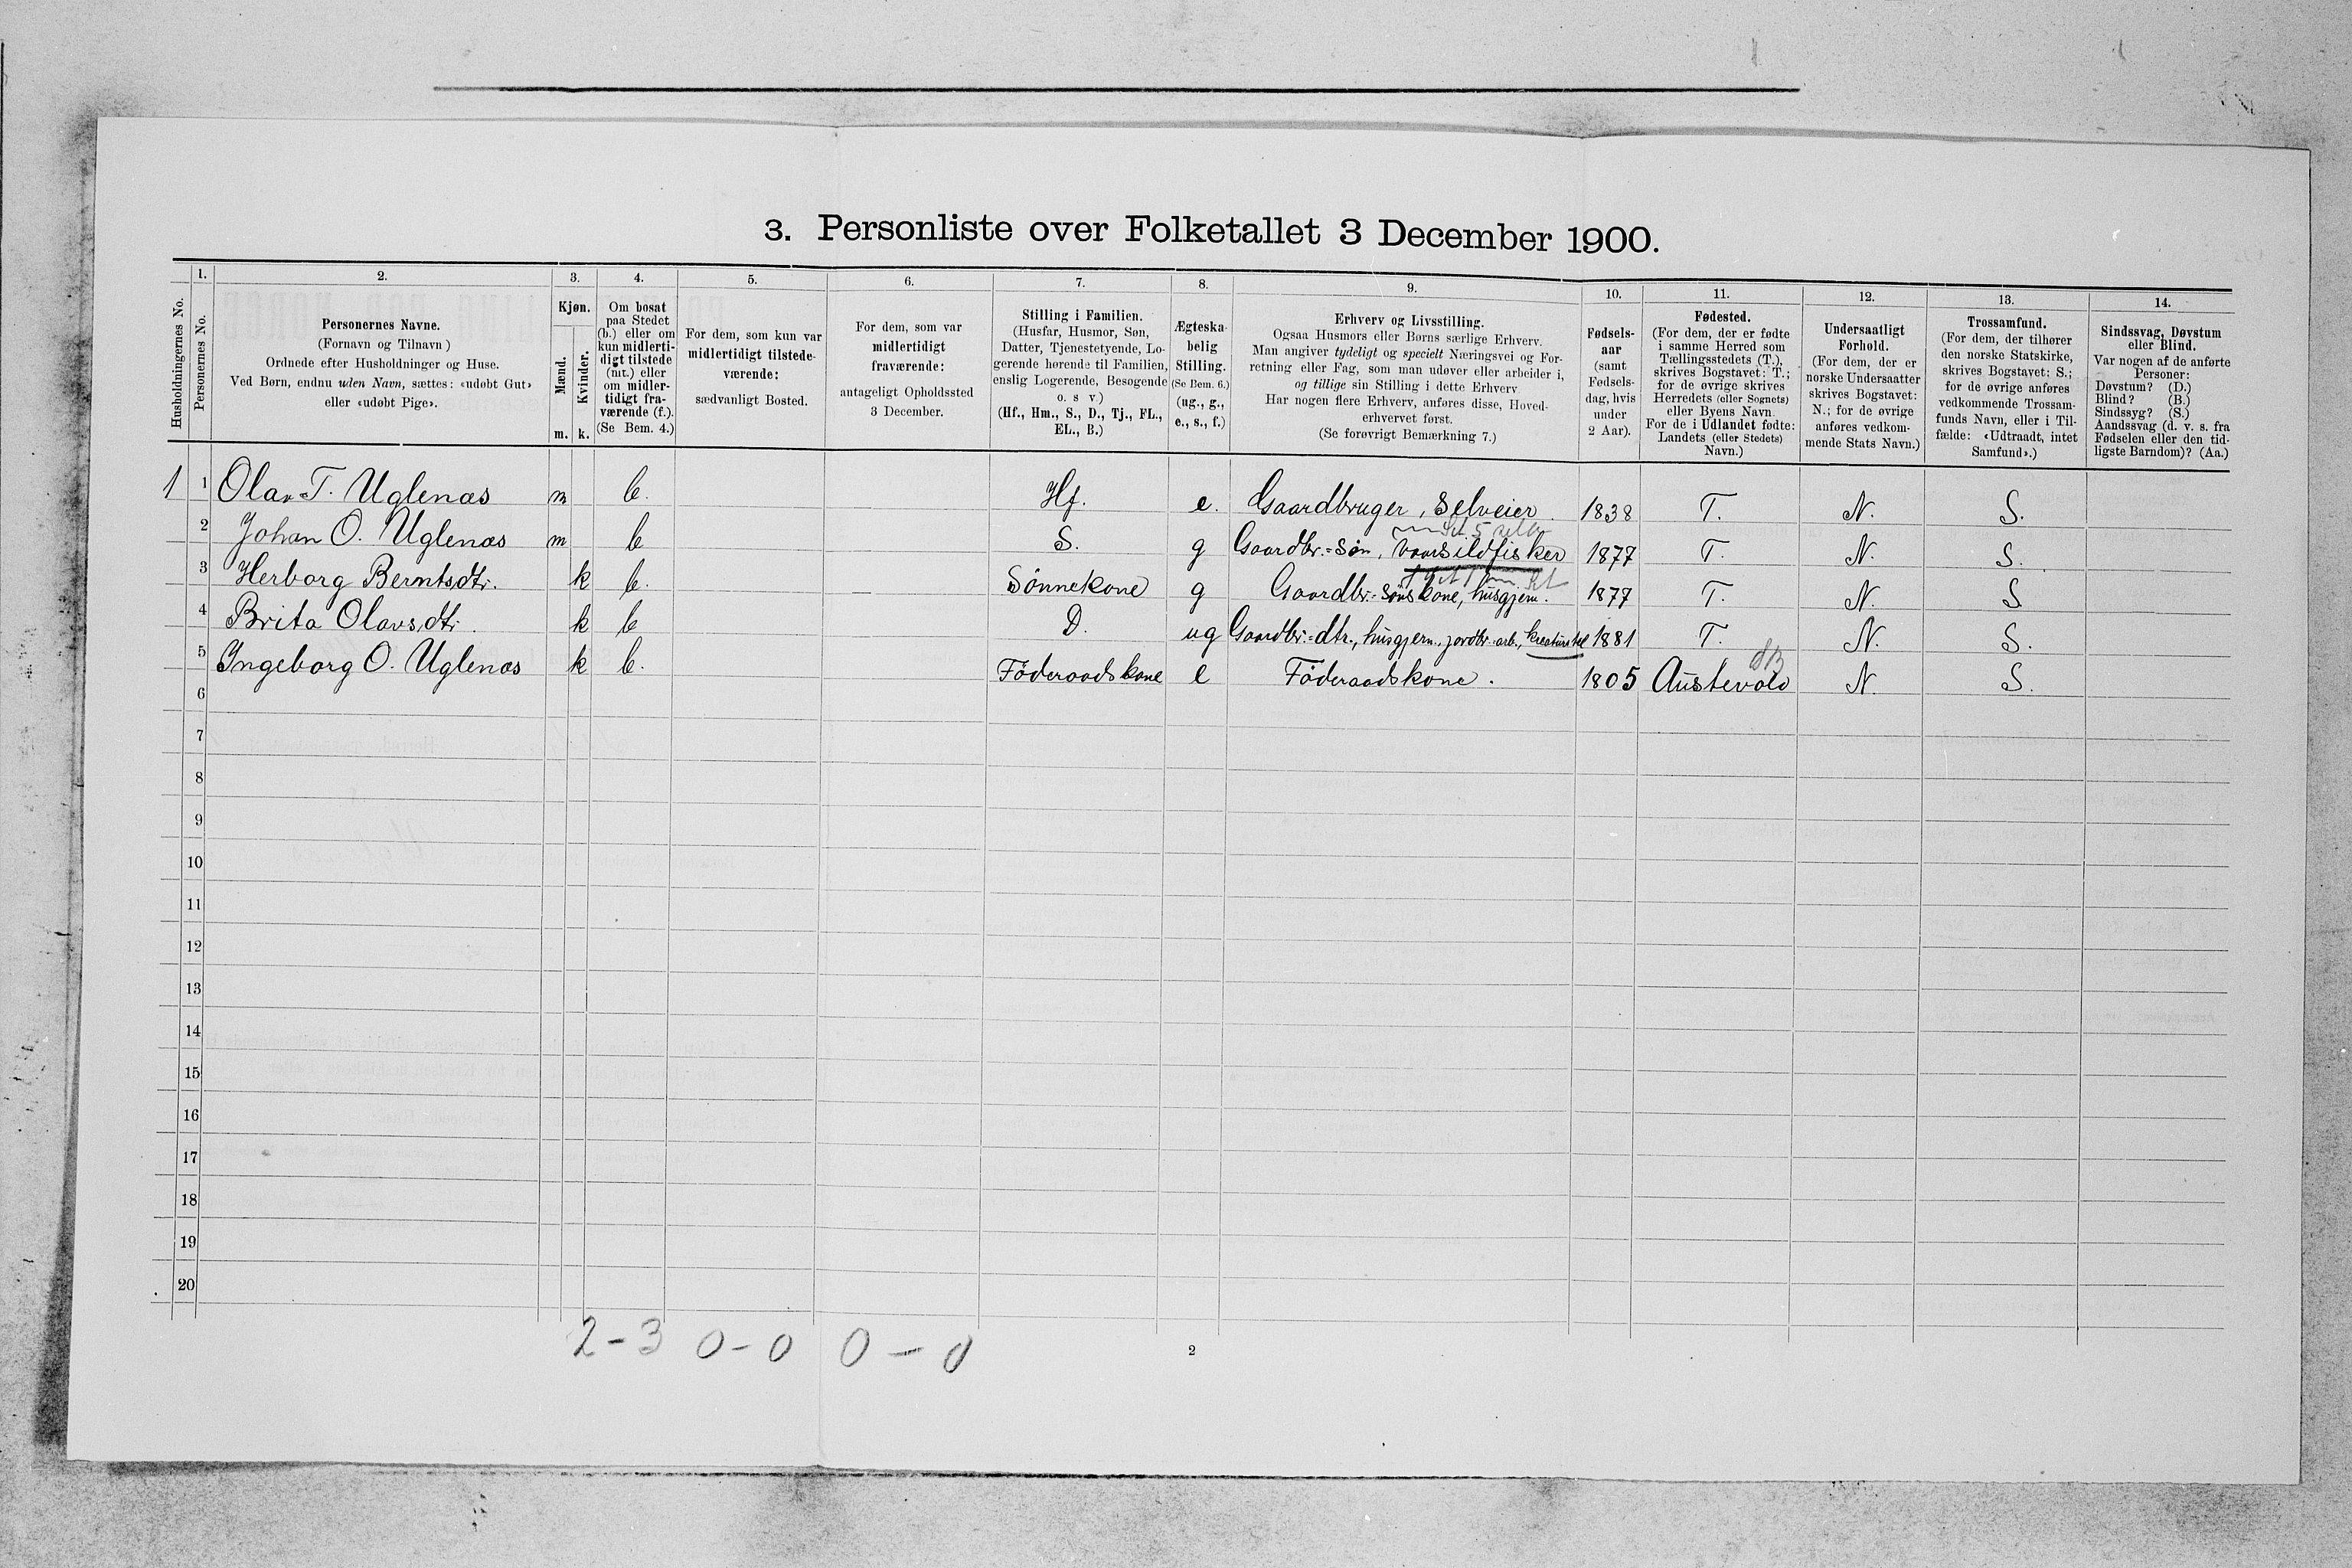 3. Personliste over Folketallet 3 December 1900.
Husholdningernes No.
1.
Personernes No.
2.
Personernes Navne.
(Fornavn og Tilnavn )
Ordnede efter Husholdninger og Huse.
Ved Børn, endnu uden Navn, sættes: «udøbt Gut»
eller «udøbt Pige».
3.
Kjøn.
Mænd.
Kvinder.
m. k.
4.
Om bosat
paa Stedet
(b.) eller om
kun midlerti-
digt tilstede
(mt.) eller
om midler-
tidigt fra-
værende (f.).
(Se Bem. 4.)
5.
For dem, som kun var
midlertidigt tilstede-
værende:
sædvanligt Bosted.
6.
For dem, som var
midlertidigt
fraværende:
antageligt Opholdssted
3 December.
7.
Stilling i Familien.
(Husfar, Husmor, Søn,
Datter, Tjenestetyende, Lo-
gerende hørende til Familien,
enslig Logerende, Besøgende
o. s v )
(Hf., Hm., S., D., Tj., FL.,
EL., B.)
8.
Ægteska-
belig
Stilling.
(Se Bem. 6.)
(ug., g.,
e., s., f.)
9.
Erhverv og Livsstilling.
Ogsaa Husmors eller Børns særlige Erhverv.
Man angiver tydeligt og specielt Næringsvei og For-
retning eller Fag, som man udøver eller arbeider i,
og tillige sin Stilling i dette Erhverv
Har nogen flere Erhverv, anføres disse, Hoved-
erhvervet først.
(Se forøvrigt Bemærkning 7.)
10.
Fødsels-
aar
(samt
Fødsels-
dag, hvis
under
2 Aar).
11.
Fødested.
(For dem, der er fødte
i samme Herred som
Tællingsstedets (T.),
skrives Bogstavet: T.;
for de øvrige skrives
Herredets (eller Sognets)
eller Byens Navn
For de i Udlandet fødte:
Landets (eller Stedets)
Navn.)
12.
Undersaatligt
Forhold.
(For dem, der er
norske Undersaatter
skrives Bogstavet:
N.; for de øvrige
anføres vedkom-
mende Stats Navn.)
13.
Trossamfund.
(For dem, der tilhører
den norske Statskirke,
skrives Bogstavet: S.;
for de øvrige anføres
vedkommende Trossam-
funds Navn, eller i Til-
fælde: «Udtraadt, intet
Samfund».)
14.
Sindssvag, Døvstum
eller Blind.
Var nogen af de anførte
Personer:
Døvstum? (D.)
Blind? (B.)
Sindssyg? (S.)
Aandssvag (d. v. s. fra
Fødselen eller den tid-
ligste Barndom)? (Aa.)
1 1 Olav T. Uglenæs m b. Hf. e. Gaardbruger, Selveier. 1838 T. N. S.
2 Johan O. Uglenæs m b S. g Gaardbr.=søn, Vaarsildfisker 1877 T. N. S.
3 Herborg Berntsdtr. k b. — Sønnekone g Gaardbr.=søns kone, husgjern. 1877 T. N. S
4 Brita Olavsdtr. k b D. ug Gaardbr.=dtr., husgjern., jordbr.-arb., kreaturstel 1881 T. N. S.
5 Ingeborg O. Uglenæs k b. Føderaadskone e Føderaadskone. 1805 Austevold N. S.
6
7
8
9
10
11
12
13
14
15
16
17
18
19
20
2-3 0-0 0-0
2